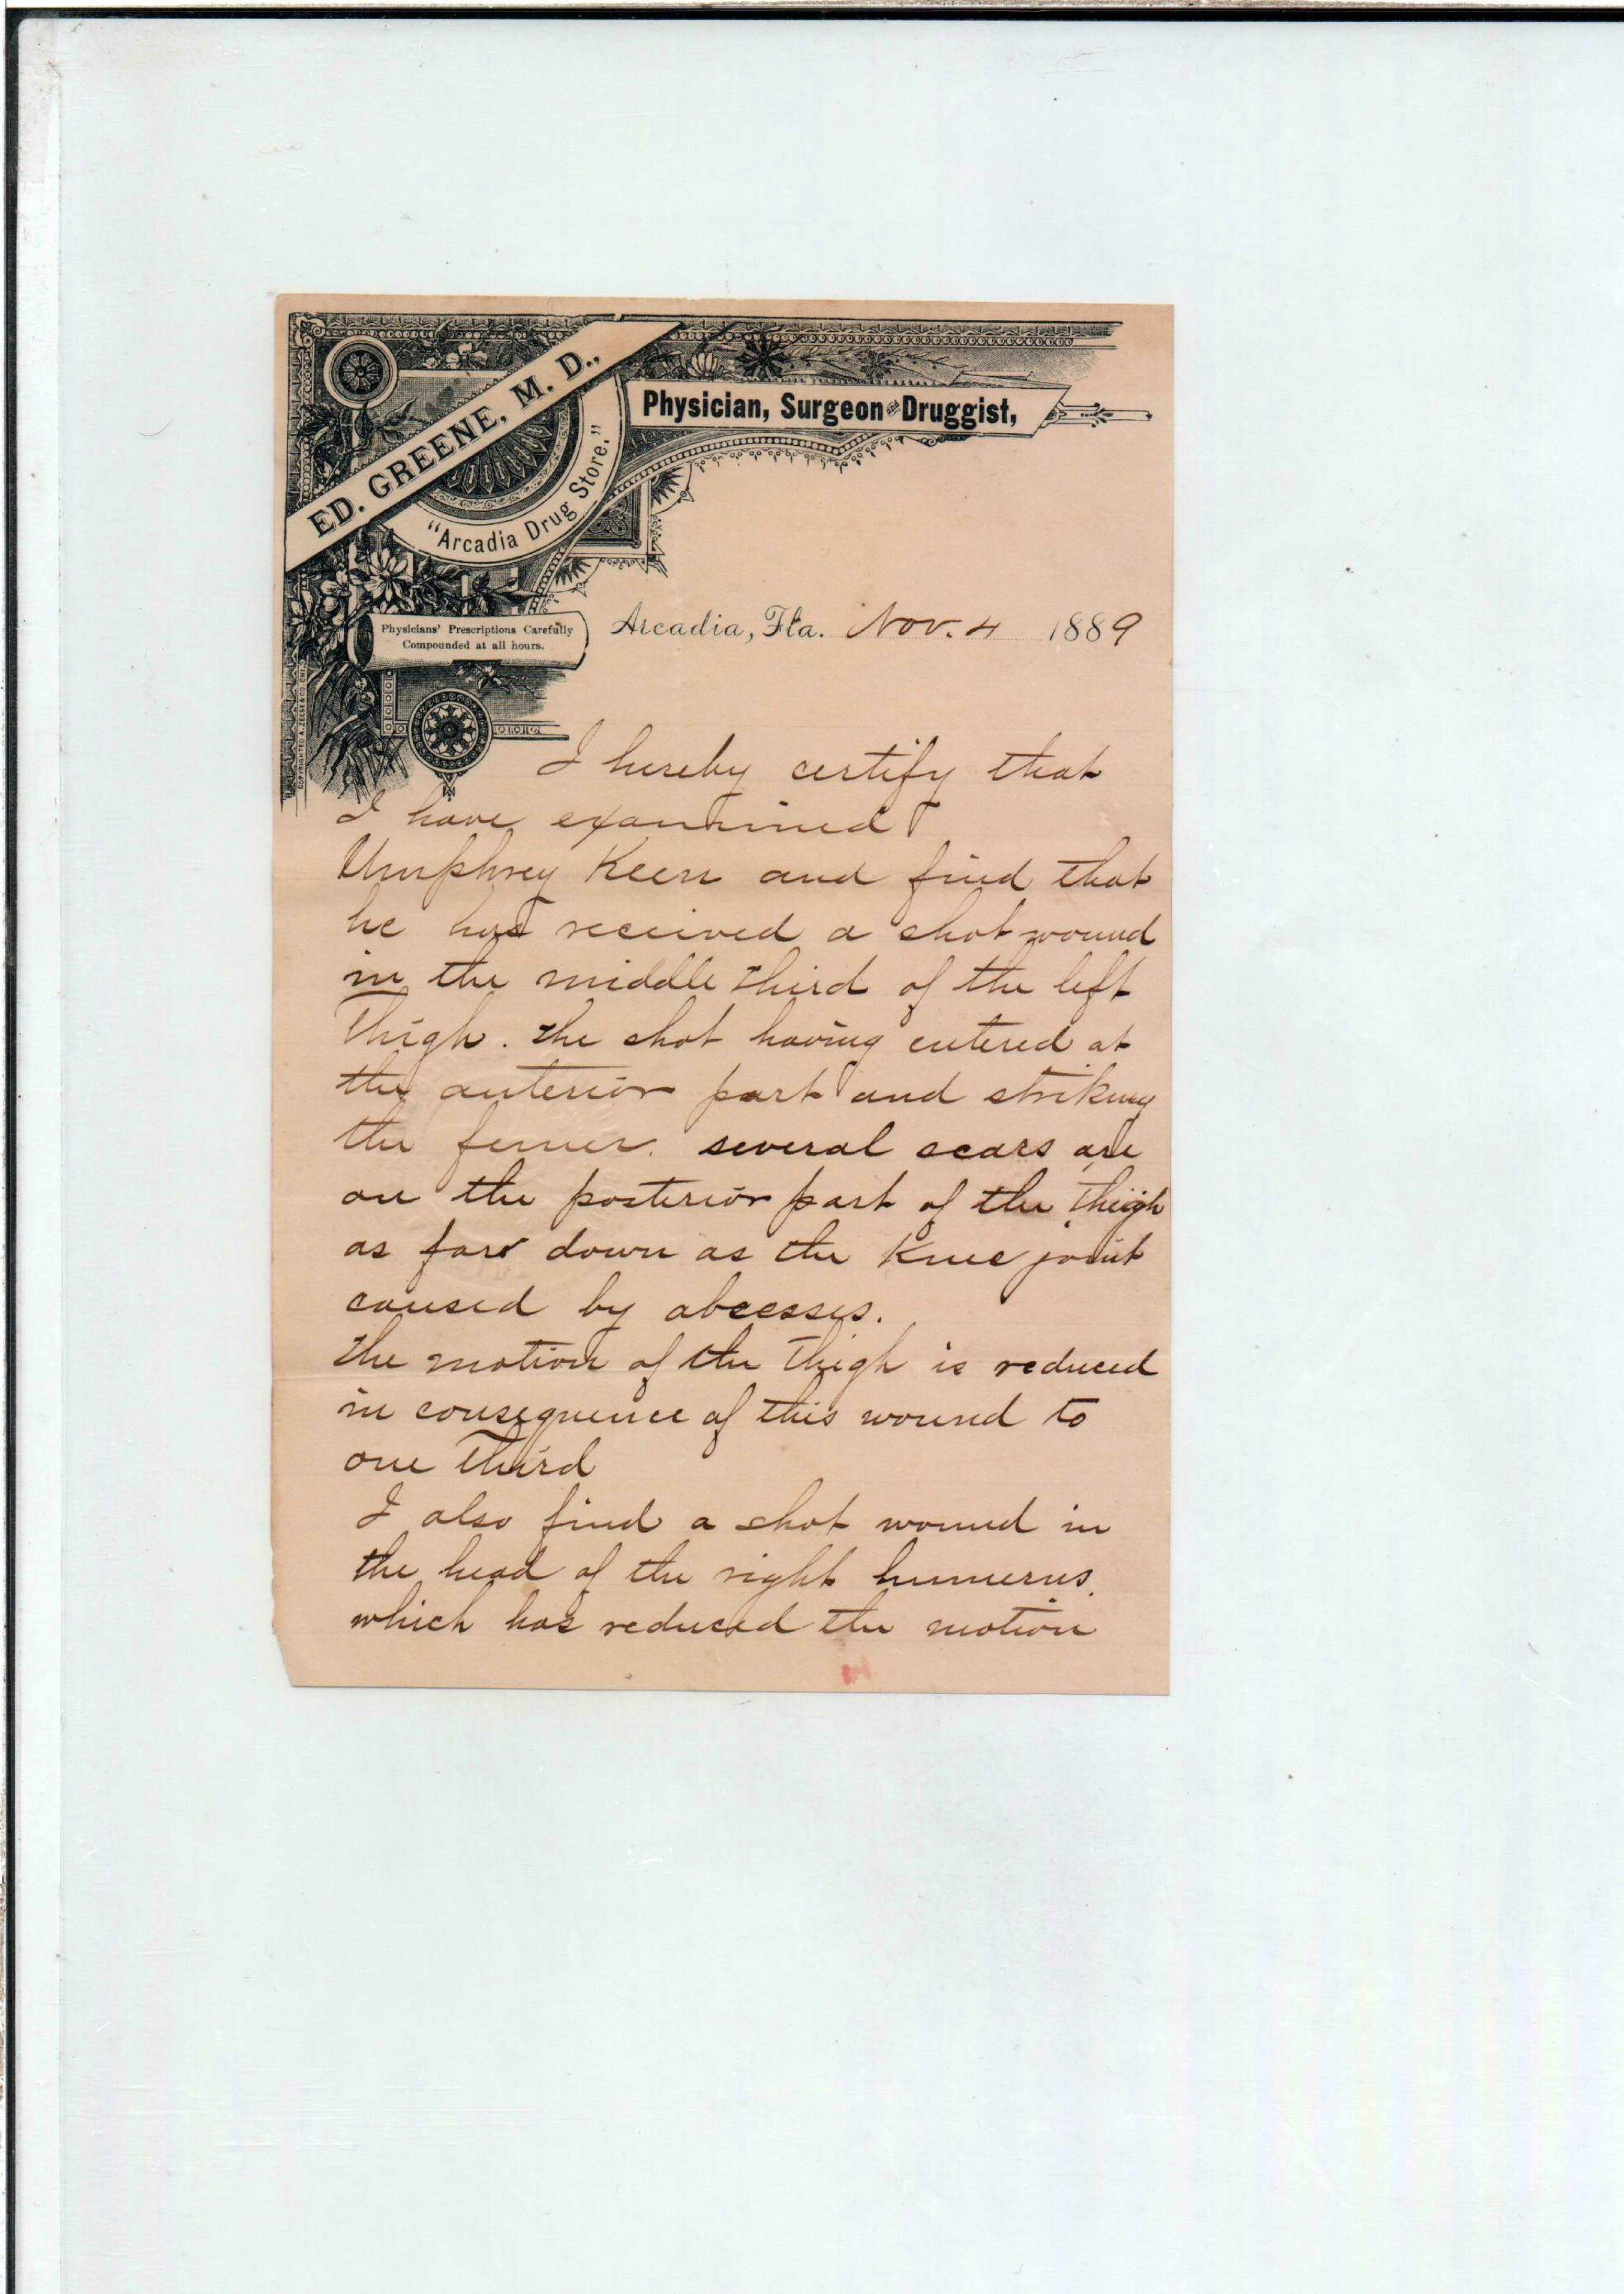 ED. GREENE, M. D.,
Physician, Surgeon and Druggist,
"Arcadia Drug Store."
Physicians' Prescriptions Carefully
Compounded at all hours.
Arcadia, Fla. Nov. 4 1889
I hereby certify that
I have examined
Umphrey Keen and find that
he has received a shot wound
in the middle third of the left
Thigh. The shot having entered at
the anterior part and striking
the femer. several scars are
on the posterior part of the Thigh
as far down as the Knee joint
caused by abcesses.
The motion of the Thigh is reduced
in consequence of this wound to
one Third
I also find a shot wound in
the head of the right humerus.
which has reduced the motion